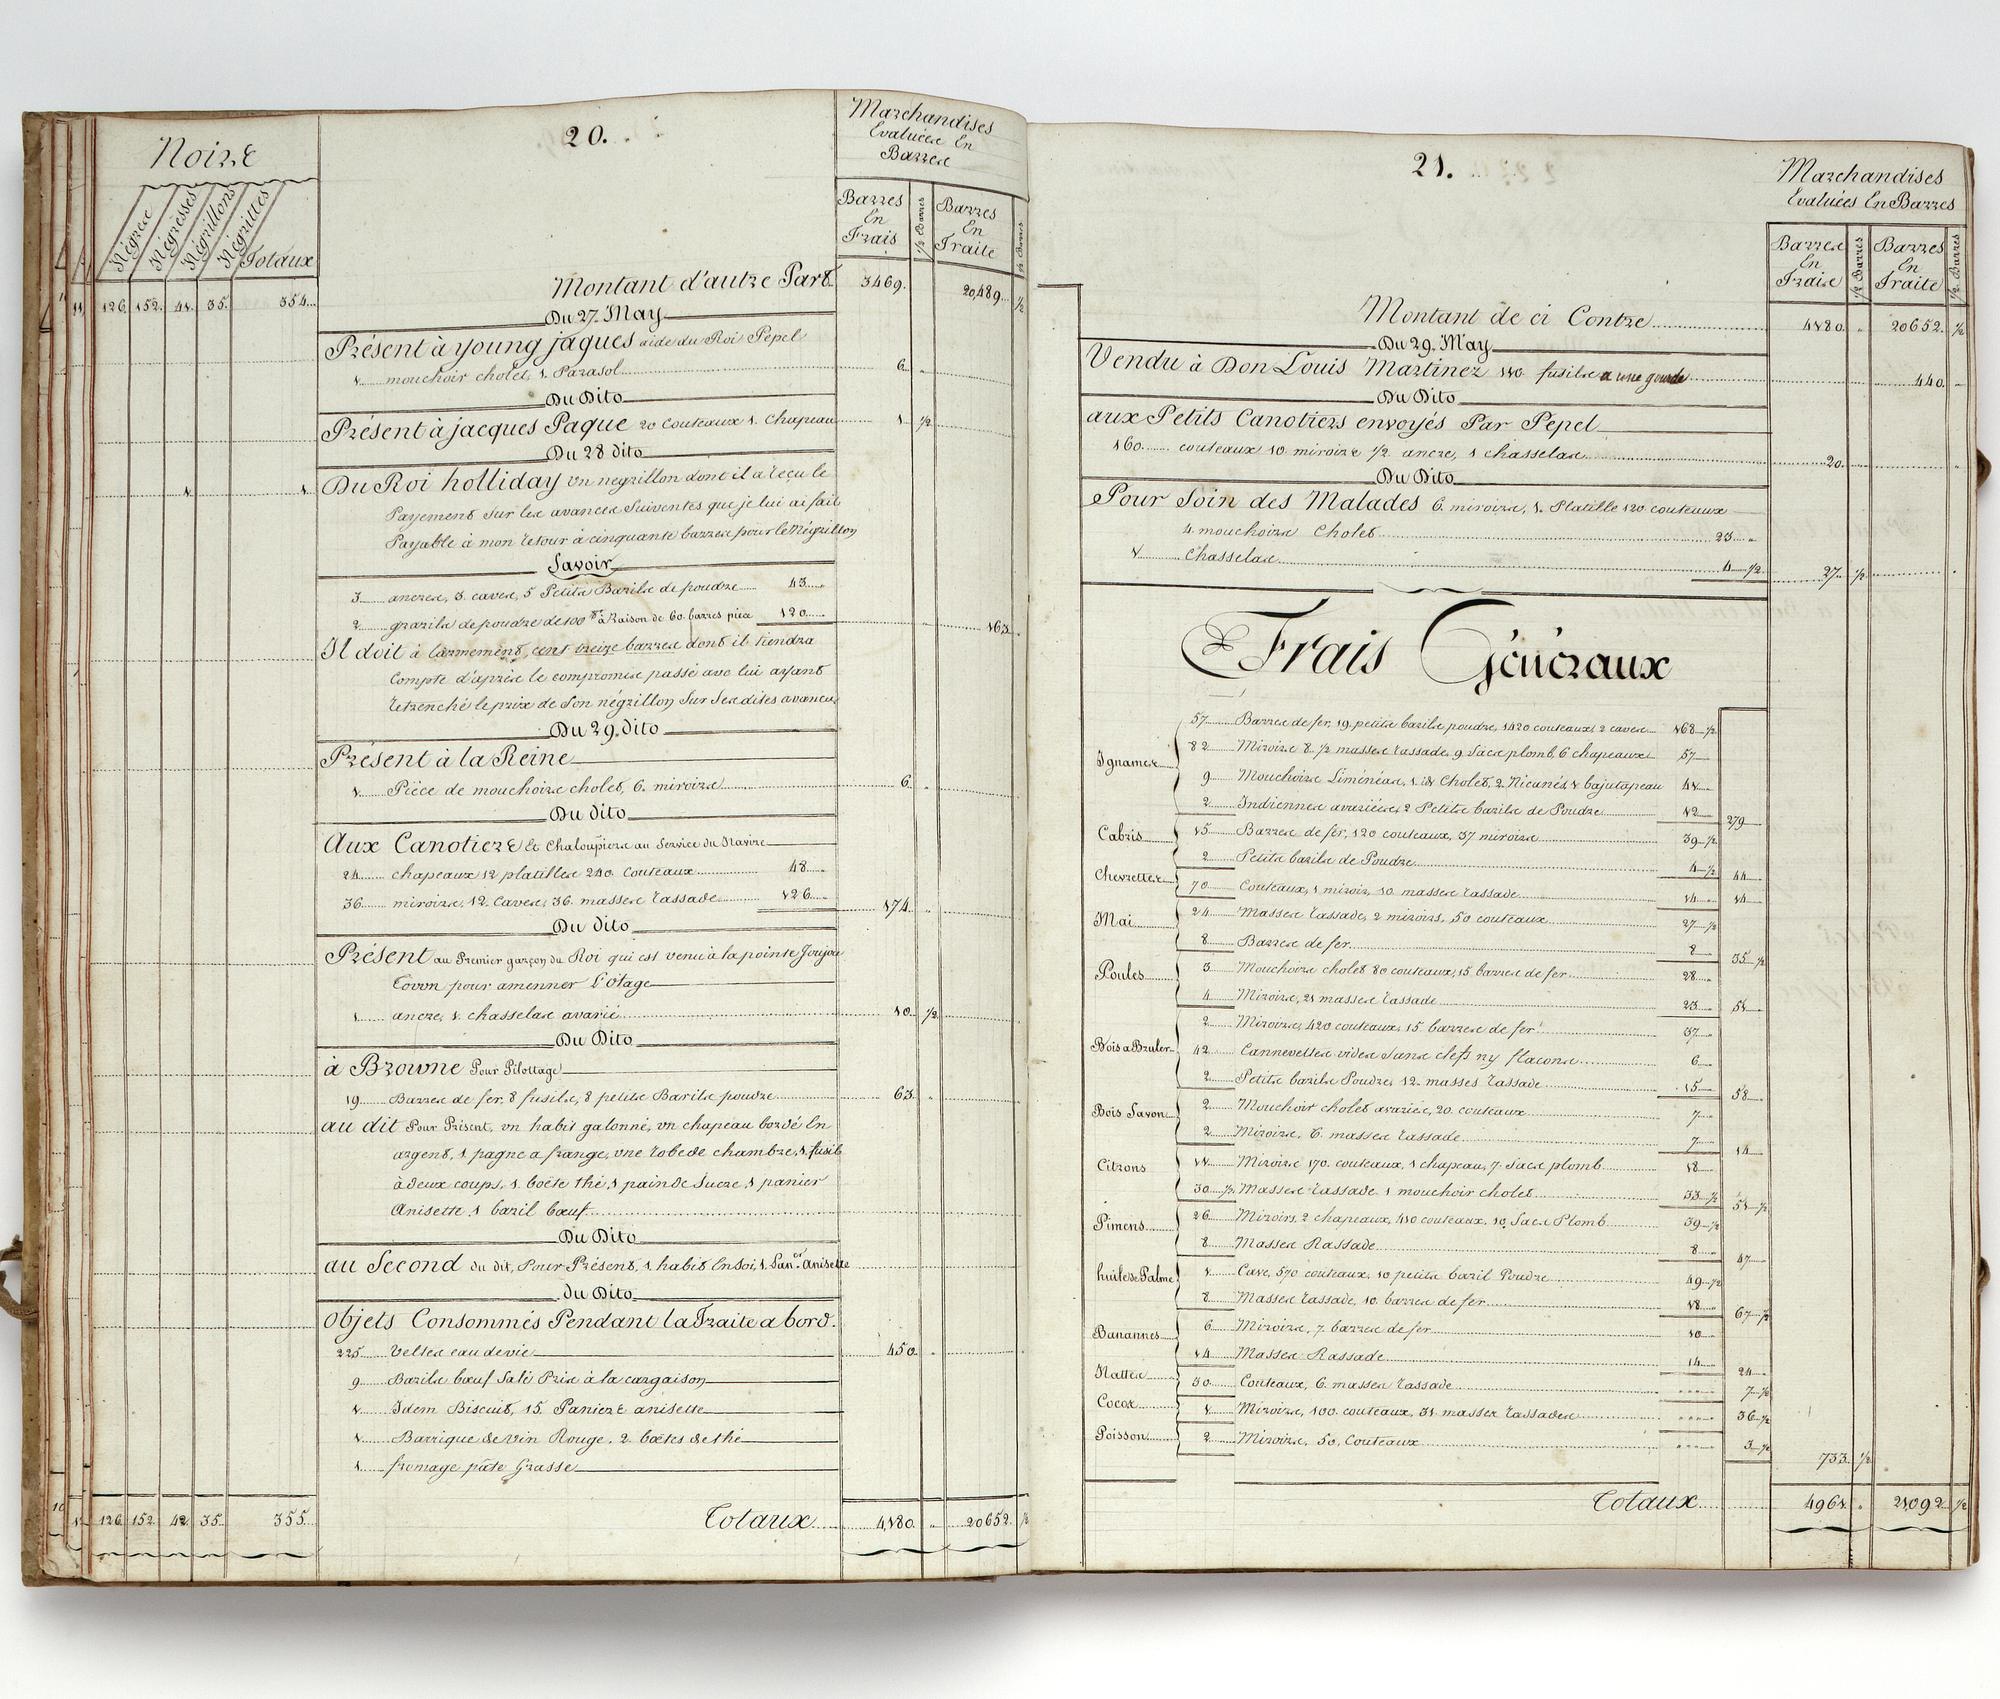 20.
Noirs
Négres
Négresses
Négrillons
Négrittes
Totaux
Marchandises
Evaluées En
Barres
Barres En Frais
1/2 Barres
Barres En Traite
1/2 Barres
Montant d'autre Part
126. 152. 41. 35. 354. 3469. 20,489. 1/2
Du 27. May
Présent à young jaques aide du Roi Pepel
1 mouchoir cholet, 1. Parasol 6
Du Dito
Présent à jacques Paque 20 couteaux 1. chapeau 1. 1/2
Du 28 dito
Du Roi holliday un negrillon dont il a reçu le 1 1
Payement sur les avances suiventes que je lui ai fait
Payable à mon retour à cinquante barres pour le Négrillon
Savoir
3 ancres, 3. caves, 5 Petits Barils de poudre 43
2 grazils de poudre de 100 à Raison de 60 barres piéce 120 163
Il doit à l'armement, cent treize barres dont il tiendra
Compte d'aprés le compromis passé avec lui ayant
retrenché le prix de son négrillon sur ses dites avances
Du 29. dito
Présent à la Reine
1 Piéce de mouchoirs cholet, 6. miroirs 6
Du dito
Aux Canotiers Et chaloupiers au Service du Navire
24 chapeaux 12 platilles 240 couteaux 48
36 miroirs, 12. Caves, 36. masses rassade 126 174
Du dito
Présent au Premier garçon du Roi qui est venu à la pointe Joujou
Tovon pour amenner L'ôtage
1 ancre, 1. chasselas avarié 10. 1/2
Du Dito
à Browne Pour Pilottage
19 Barres de fer, 8 fusils, 8 petits Barils poudre 63
au dit Pour Présent, un habit galonné, un chapeau bordé En
argent, 1 pagne a frange, une robe de chambre, 1. fusil
à deux coups, 1. boëte thé, 1 pain de Sucre, 1 panier
Anisette, 1 baril bœuf
Du Dito
au Second du dit, Pour Présent, 1. habit En soi, 1. Pan.er Anisette
du Dito
Objets Consommés Pendant la Traite a bord.
225 veltes eau de vie 450
9 Barils bœuf Salé Pris à la cargaison
1 Idem Biscuit, 15. Paniers anisette
1 Barrique de vin Rouge, 2. boëtes de thé
1 fromage pâte Grasse
126. 152. 42. 35. 355. Totaux 4,180. 20652. 1/2
21.
Marchandises
Evaluées En Barres
Barres En Frais
1/2 Barres
Barres En Traite
1/2 Barres
Montant de ci Contre 4180. 20652. 1/2
Du 29. May
Vendu à Don Louis Martinez 110 fusils a une gourde 440
Du Dito
aux Petits Canotiers envoyés Par Pepel
160 couteaux 10 miroirs 1/2 ancre, 1 chasselas 20
Du Dito
Pour Soin des Malades 6. miroirs, 1. Platille 120 couteaux
4 mouchoirs Cholet 23
1 Chasselas 4 1/2 27 1/2
Frais Généraux
57 Barres de fer, 19. petits barils poudre, 1420 couteaux, 2 caves 168 1/2
Ignames 82 Miroirs 8. 1/2 masses rassade, 9 Sacs plomb, 6 chapeaux 57
9 Mouchoirs Liménéas, 1. id Cholet, 2. Nicanés, 1 bajutapeau 41
2 Indiennes avariées, 2 Petits barils de Poudre 12 279
Cabris 15 Barres de fer, 120 couteaux, 37 miroirs 39 1/2
2 Petits barils de Poudre 4 1/2 44
Chevrettes 70 Couteaux, 1 miroir, 10. masses rassade 14 14
Mai 24 Masses rassade, 2 miroirs, 50 couteaux 27 1/2
8 Barres de fer 8 35 1/2
Poules 3 Mouchoirs cholet 80 couteaux, 15 barres de fer 28
4 Miroirs, 21 masses rassade 23 51
2 Miroirs, 420 couteaux, 15. barres de fer 37
Bois a Bruler 42 Cannevettes vides Sans clefs ny flacons 6
2 Petits barils Poudre, 12. masses rassade 15 58
Bois Savon 2 Mouchoir cholet avariés, 20. couteaux 7
2 Miroirs, 6. masses rassade 7 14
Citrons 11 Miroirs 170. couteaux, 1 chapeau, 7. Sacs plomb 18
30 1/2 Masses rassade 1 mouchoir cholet 33 1/2 51 1/2
Pimens 26 Miroirs, 2 chapeaux, 410 couteaux, 10. Sacs Plomb 39 1/2
8 Masses Rassade 8 47
huile de Palme 1 Cave, 570 couteaux, 10 petits baril Poudre 49 1/2
8 Masses rassade, 10. barres de fer 18 67 1/2
Banannes 6 Miroirs, 7. barres de fer 10
14 Masses Rassade 14 24
Nattes 30 Couteaux, 6. masses rassade 7 1/2
Cocos 1 Miroirs, 100. couteaux, 31 masses rassades 36 1/2
Poisson 2 Miroirs, 50, Couteaux 3 1/2
733 1/2
Totaux 4961. 21,092. 1/2